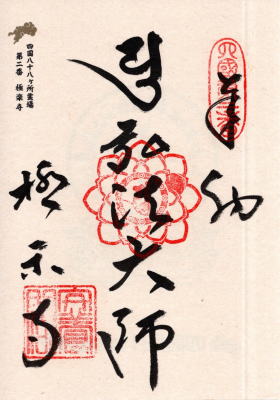 奉納
弘法大師
極楽寺
四国八十八ヶ所霊場
第二番 極楽寺